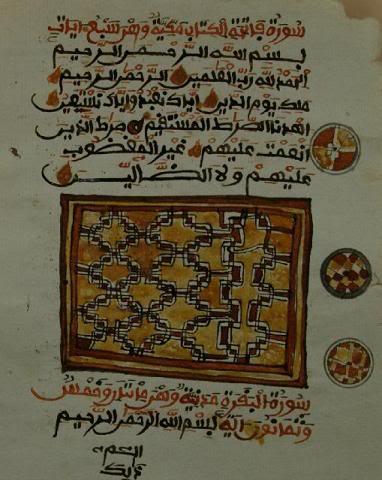 سورة فاتحة الكتاب مكية وهي سبع ايات
بسم الله الرحمن الرحيم
الحمد لله رب العلمين الرحمن الرحيم
ملك يوم الدين اياك نعبد واياك نستعين
اهدنا الصراط المستقيم صراط الذين
انعمت عليهم غير المغضوب
عليهم ولا الضالين
سورة البقرة مدنية وهي مائتان وخمس
وثمانون اية بسم الله الرحمن الرحيم
الم
ذلك